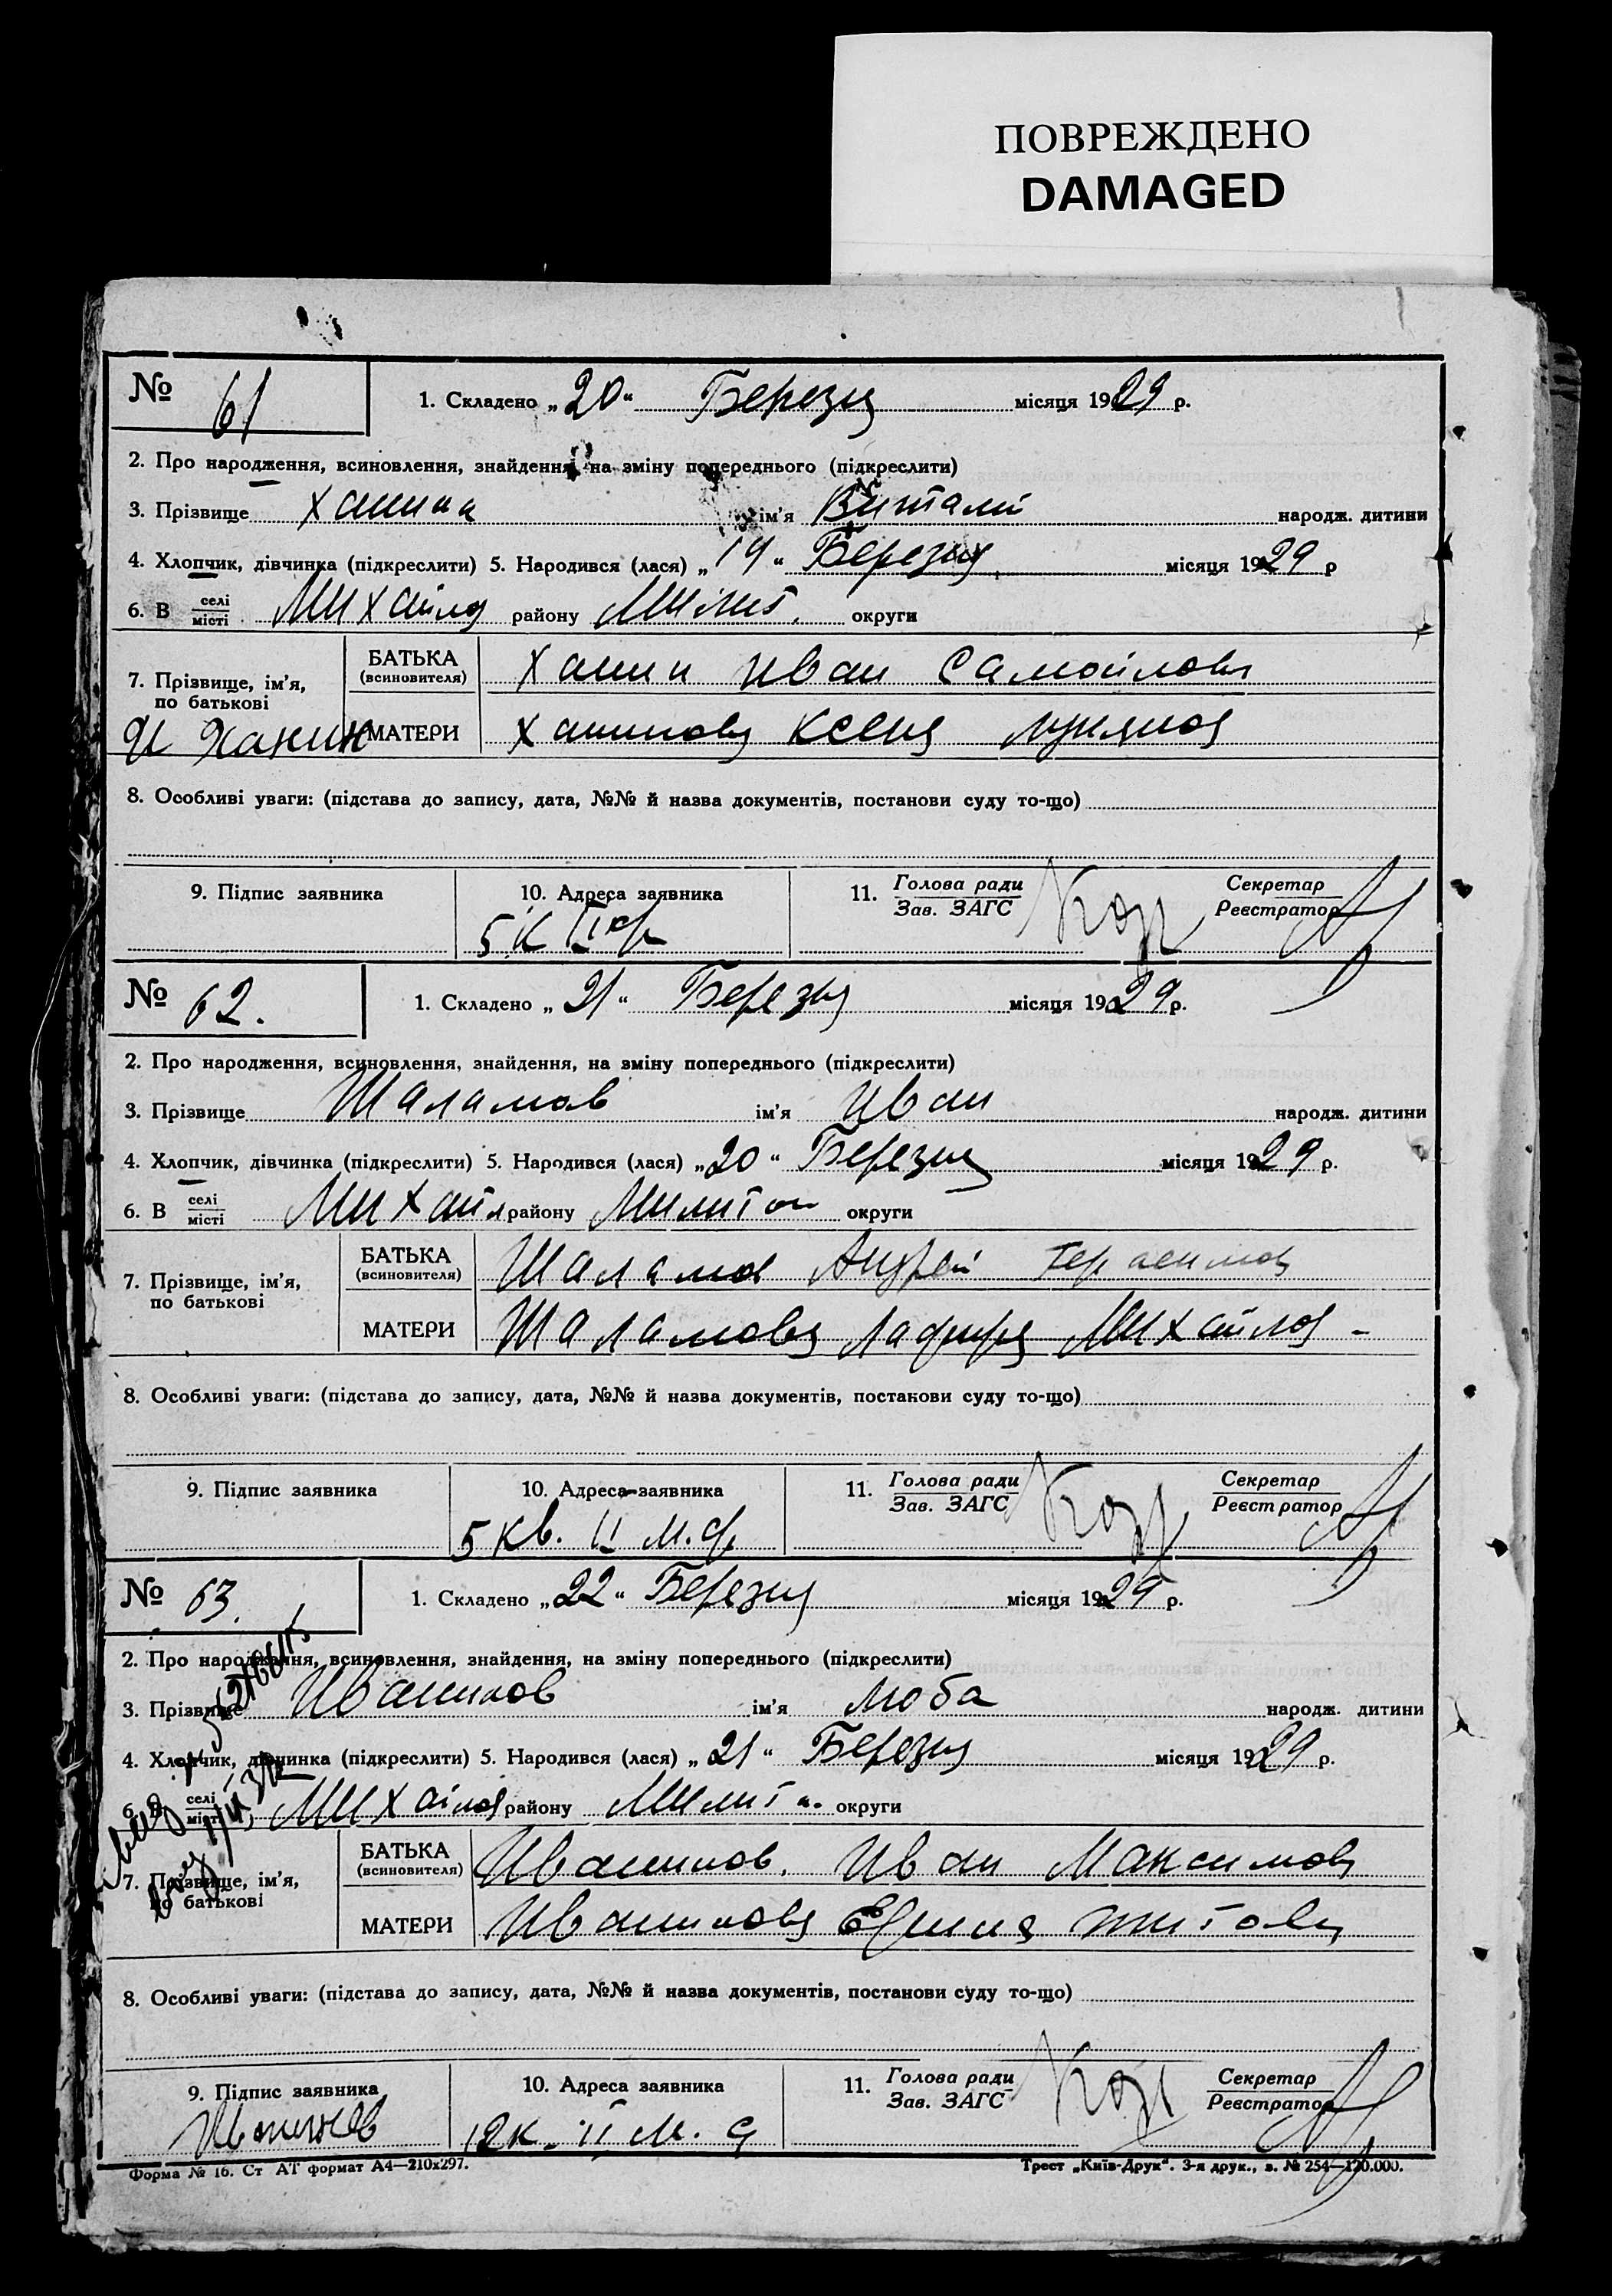 ПОВРЕЖДЕНО
DAMAGED
№ 61 1. Складено „20“ Березня місяця 1929 р.
2. Про народження, всиновлення, знайдення, на зміну попереднього (підкреслити)
3. Прізвище Ханина ім’я Виталий народж. дитини
4. Хлопчик, дівчинка (підкреслити) 5. Народився (лася) „19“ Березня місяця 1929 р
6. В селі/місті Михайлов району Милит. округи
7. Прізвище, ім’я, по батькові
БАТЬКА (всиновителя) Ханин Иван Самойлов
И Ханин
МАТЕРИ Ханинова Ксеня Лукянов
8. Особливі уваги: (підстава до запису, дата, №№ й назва документів, постанови суду то-що)
9. Підпис заявника 10. Адреса заявника 11. Голова ради Зав. ЗАГС Секретар Реєстратор
5 К II
№ 62. 1. Складено „21“ Березня місяця 1929 р.
2. Про народження, всиновлення, знайдення, на зміну попереднього (підкреслити)
3. Прізвище Шаламов ім’я Иван народж. дитини
4. Хлопчик, дівчинка (підкреслити) 5. Народився (лася) „20“ Березня місяця 1929 р.
6. В селі/місті Михайл району Милитоп округи
7. Прізвище, ім’я, по батькові
БАТЬКА (всиновителя) Шаламов Андрей Герасимов
МАТЕРИ Шаламова Михайлов -
8. Особливі уваги: (підстава до запису, дата, №№ й назва документів, постанови суду то-що)
9. Підпис заявника 10. Адреса заявника 11. Голова ради Зав. ЗАГС Секретар Реєстратор
5 кв. II м. ф.
№ 63. 1. Складено „22“ Березня місяця 1929 р.
2. Про народження, всиновлення, знайдення, на зміну попереднього (підкреслити)
3. Прізвище Иваников ім’я Люба народж. дитини
4. Хлопчик, дівчинка (підкреслити) 5. Народився (лася) „21“ Березня місяця 1929 р.
6. В селі/місті Михайлов району Милит. округи
7. Прізвище, ім’я, по батькові
БАТЬКА (всиновителя) Иваников. Иван Максимов
МАТЕРИ Иваникова Титова
8. Особливі уваги: (підстава до запису, дата, №№ й назва документів, постанови суду то-що)
9. Підпис заявника 10. Адреса заявника 11. Голова ради Зав. ЗАГС Секретар Реєстратор
12 к. II м.
Форма № 16. Ст АТ формат А4—210х297. Трест „Київ-Друк“. 3-я друк., з. № 254—120.000.